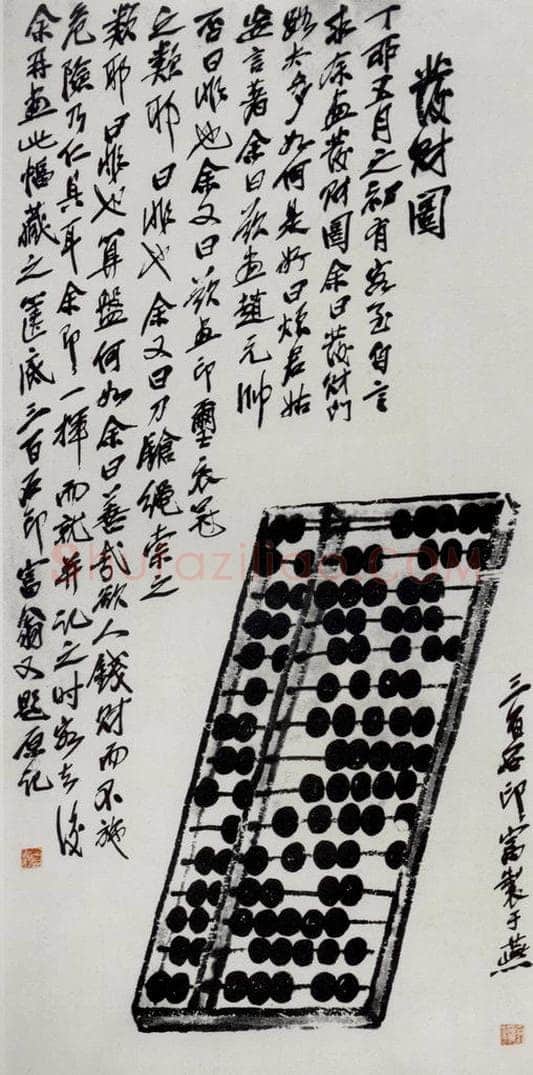 發財圖
丁卯五月之初有客至自言
求余畫發財圖余曰發財門
路太多如何是好曰煩君姑
妄言著余曰欲畫趙元帥
否曰非也余又曰欲畫印璽衣冠
之類耶曰非也余又曰刀鎗繩索之
類耶曰非也算盤何如余曰善哉欲人錢財而不施
危險乃仁具耳余即一揮而就并記之時客去後
余再畫此幅藏之篋底三百石印富翁又題原記
三百石印富製于燕
Shufaziliao.COM